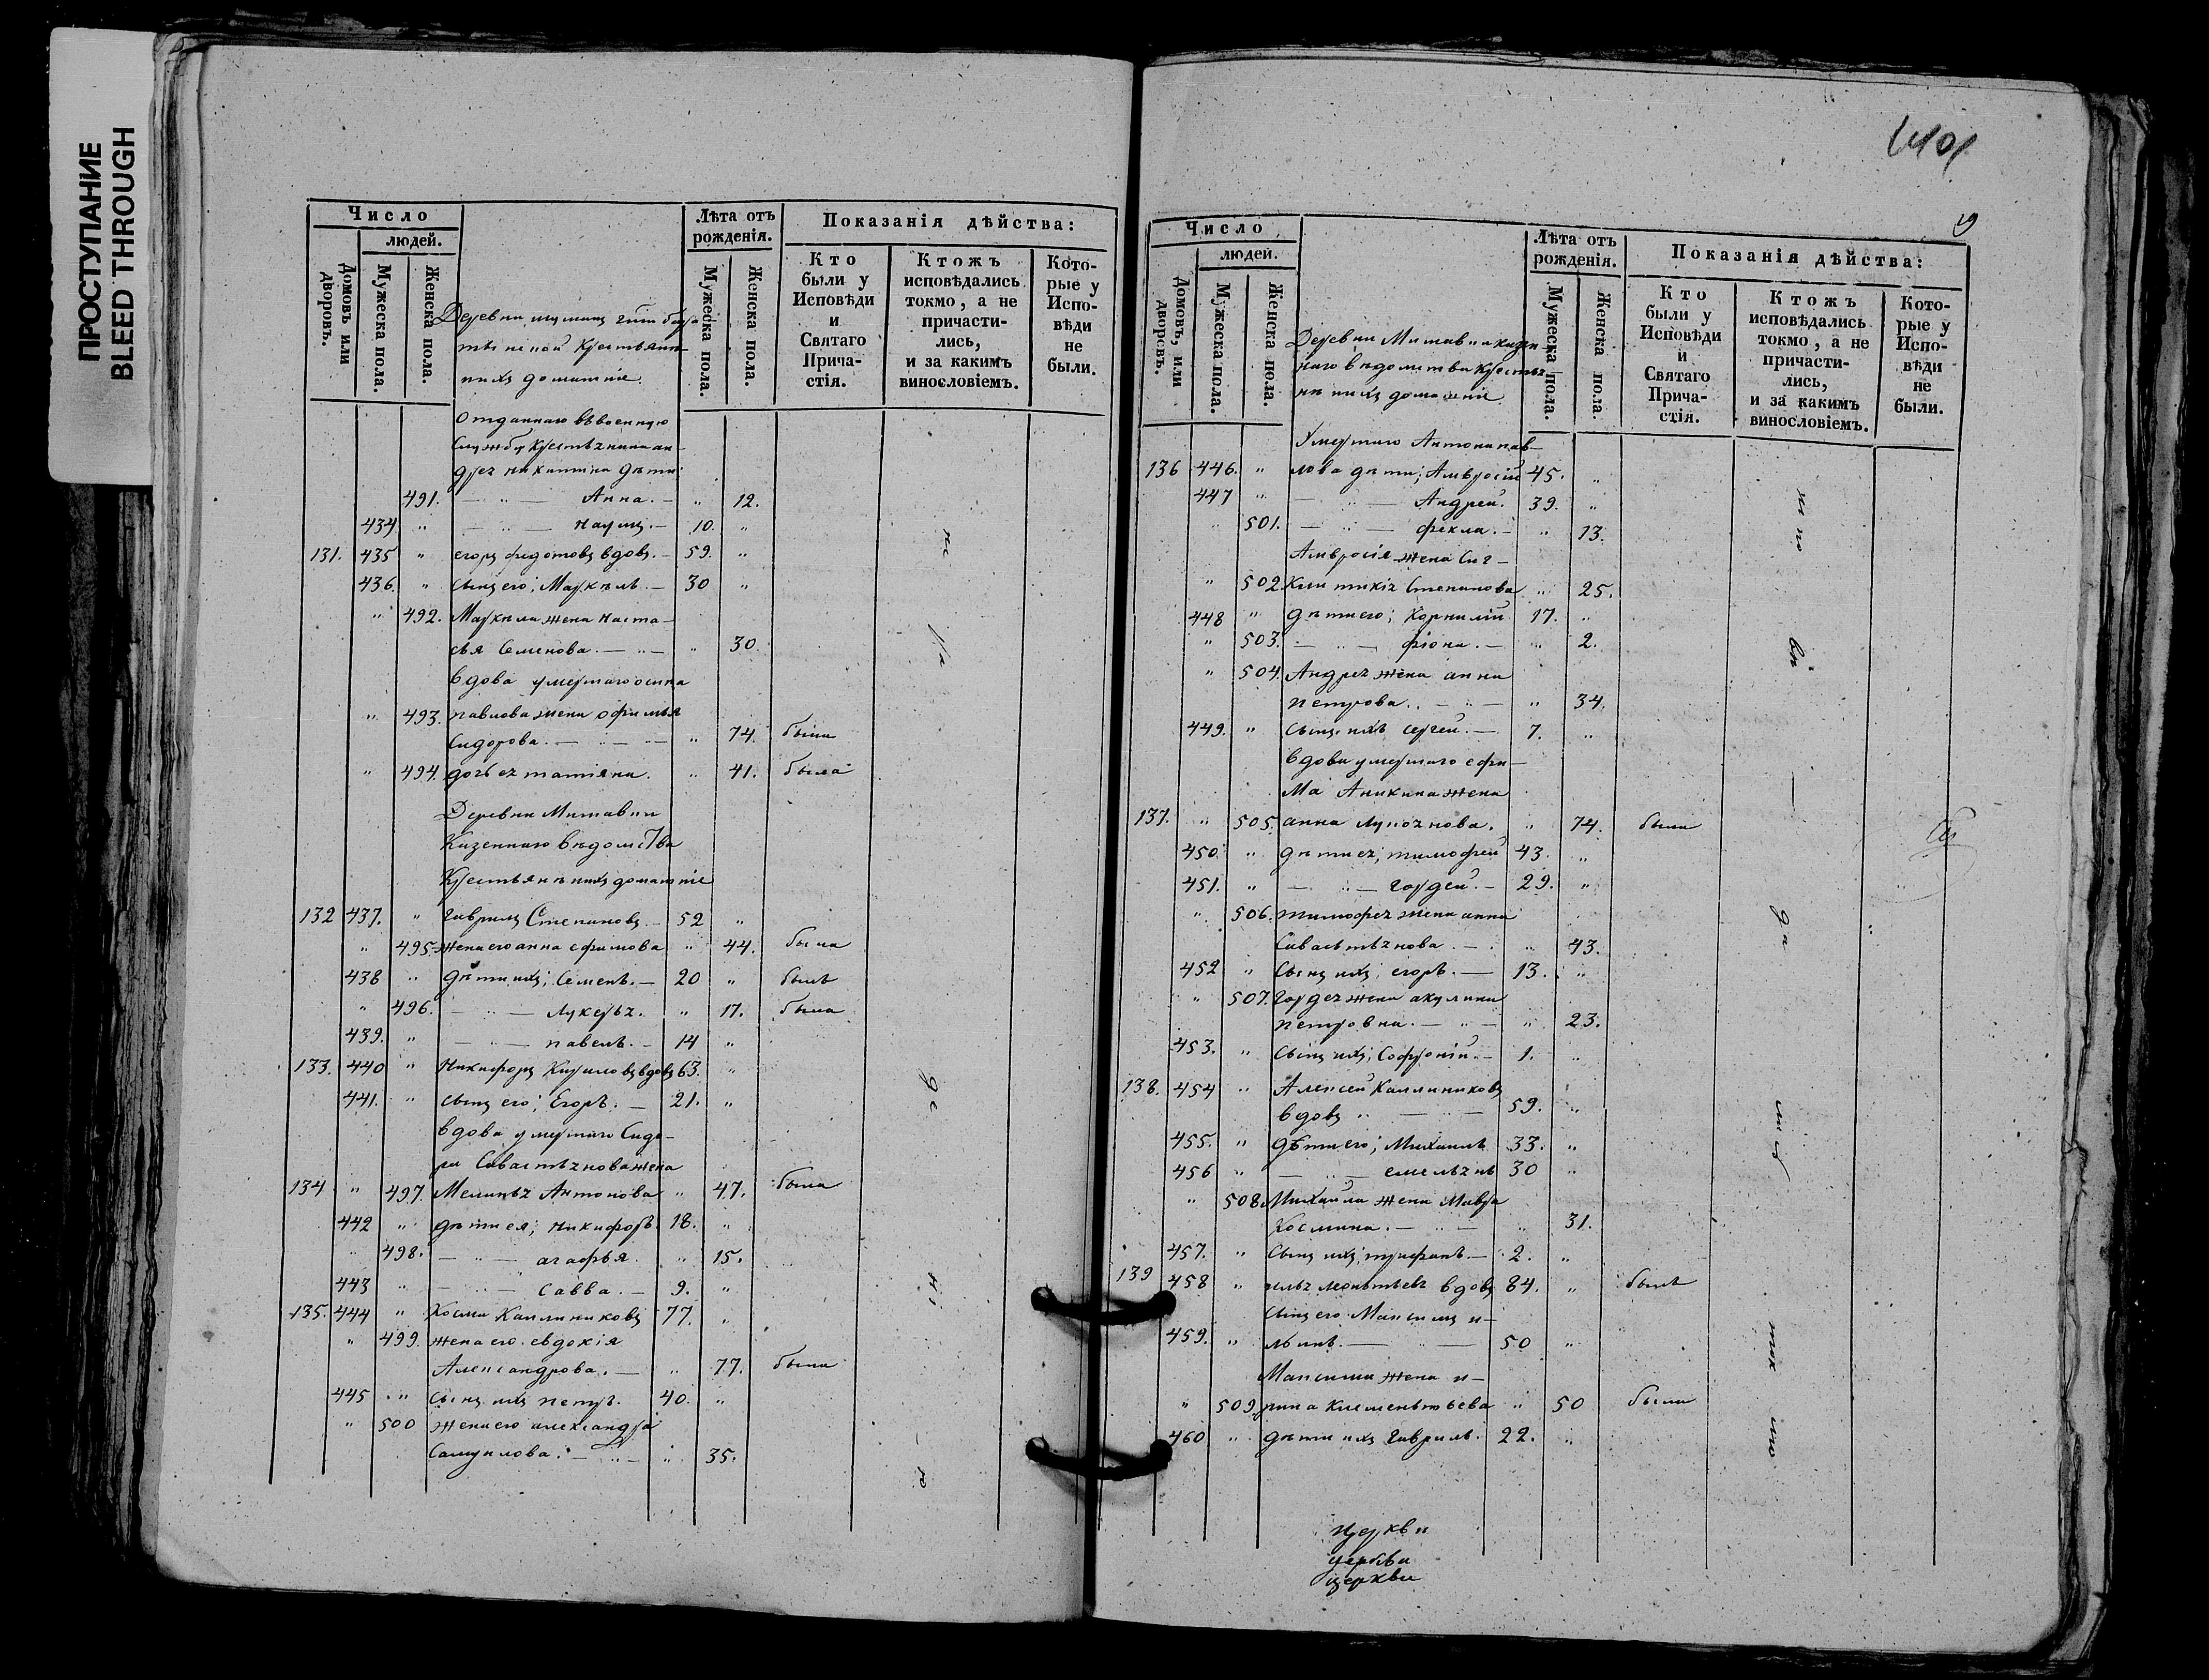 ПРОСТУПАНИЕ
BLEED THROUGH
Число
людей.
Домовъ или дворовъ.
Мужеска пола.
Женска пола.
Лѣта отъ рожденія.
Мужеска пола.
Женска пола.
Показанія дѣйства:
Кто были у Исповѣди и Святаго Прича-стія.
Ктожъ исповѣдались токмо, а не причасти-лись, и за какимъ винословіемъ.
Кото-рые у Испо-вѣди не были.
Деревни
крестьянъ
нихъ домашніе
Отданнаго въ военную
Службу крестьянина ан-
дрея никитина дѣти;
491. — „ — Анна. — „ 12.
434 „ — „ — Наумъ. — 10. „
131. 435 „ егоръ федотовъ вдовъ. — 59. „
436. „ сынъ его; Маркелъ. — 30 „
„ 492. Маркела жена наста-
сья Семенова. — „ — „ 30.
вдова умершаго осипа
„ 493. павлова жена офимья
Сидорова. — „ — „ — „ 74. была
„ 494. дочь ея татіяна. „ 41. была
Деревни Митавки
Казеннаго вѣдомства
Крестьянъ нихъ домашніе
132 437. „ Гаврилъ Степановъ — 52 „
„ 495. жена его анна ефимова „ 44. была
438 „ дѣти ихъ; Семенъ. — 20 „ былъ
„ 496. — „ — Лукерья. „ 17. была
439. „ — „ — павелъ. — 14 „
133. 440 „ Никифоръ Кириловъ вдовъ 63. „
441. „ сынъ его; Егоръ. — 21. „
вдова умершаго Сидо-
ра Савастьянова жена
134 „ 497. Меланья Антонова „ 47. была
442 „ дѣти ея; Никифоръ 18. „
„ 498. — „ — агафья. „ 15.
443 „ — „ — Савва. — 9. „
135. 444 „ Косма Каллиниковъ 77. „
„ 499. жена его евдокія
Александрова. — „ 77. была
445 „ сынъ ихъ петръ. 40. „
„ 500 жена его александра
Самуилова. — „ — „ 35.
9
Число
людей.
Домовъ, или дворовъ.
Мужеска пола.
Женска пола.
Лѣта отъ рожденія.
Мужеска пола.
Женска пола.
Показанія дѣйства:
Кто были у Исповѣди и Святаго Прича-стія.
Ктожъ исповѣдались токмо, а не причасти-лись, и за какимъ винословіемъ.
Кото-рые у Испо-вѣди не были.
Деревни Митавки казен-
наго вѣдомства крестья-
нъ нихъ домашніе
Умершаго Антона пав-
136 446. „ лова дѣти; Амвросій 45. „
447 „ — „ — Андрей. 39. „
501. — „ — фекла. — „ 13.
Амвросія жена Син-
„ 502 клитикія Степанова „ 25.
448 „ дѣти его; Корнилій 17. „
„ 503. — „ — фіона. — „ 2.
„ 504. Андрея жена анна
петрова. — „ — „ 34.
449. „ сынъ ихъ сергей. — 7. „
вдова умершаго ефи-
ма Аникина жена
137. „ 505. анна „ 74. была
450. „ дѣти ея; тимофей 43. „
451. „ — „ — гордей. — 29. „
„ 506. тимофея жена анна
Савастьянова. — „ 43.
452 „ Сынъ ихъ; егоръ. — 13. „
„ 507. гордея жена акулина
петровна. — „ — „ 23.
453. „ сынъ ихъ; Софроній. — 1. „
138. 454 „ Алексей Каллиниковъ
вдовъ „ — „ — 59. „
455. „ дѣти его; Михаилъ 33. „
456 „ — „ — емельянъ 30 „
„ 508. Михаила жена Мавра
Космина. — „ — „ 31.
457. „ сынъ ихъ; трифанъ — 2. „
139 458 „ илья леонтьевъ вдовъ 84. „ былъ
сынъ его Максимъ и-
459. „ льинъ. — „ — 50 „
Максима жена и-
„ 509 рина Клементьева „ 50 была
460 „ дѣти ихъ Гаврилъ. 22. „
церкви
церкви
церкви